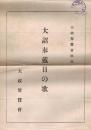 大詔奉戴日の歌
大政翼賛會